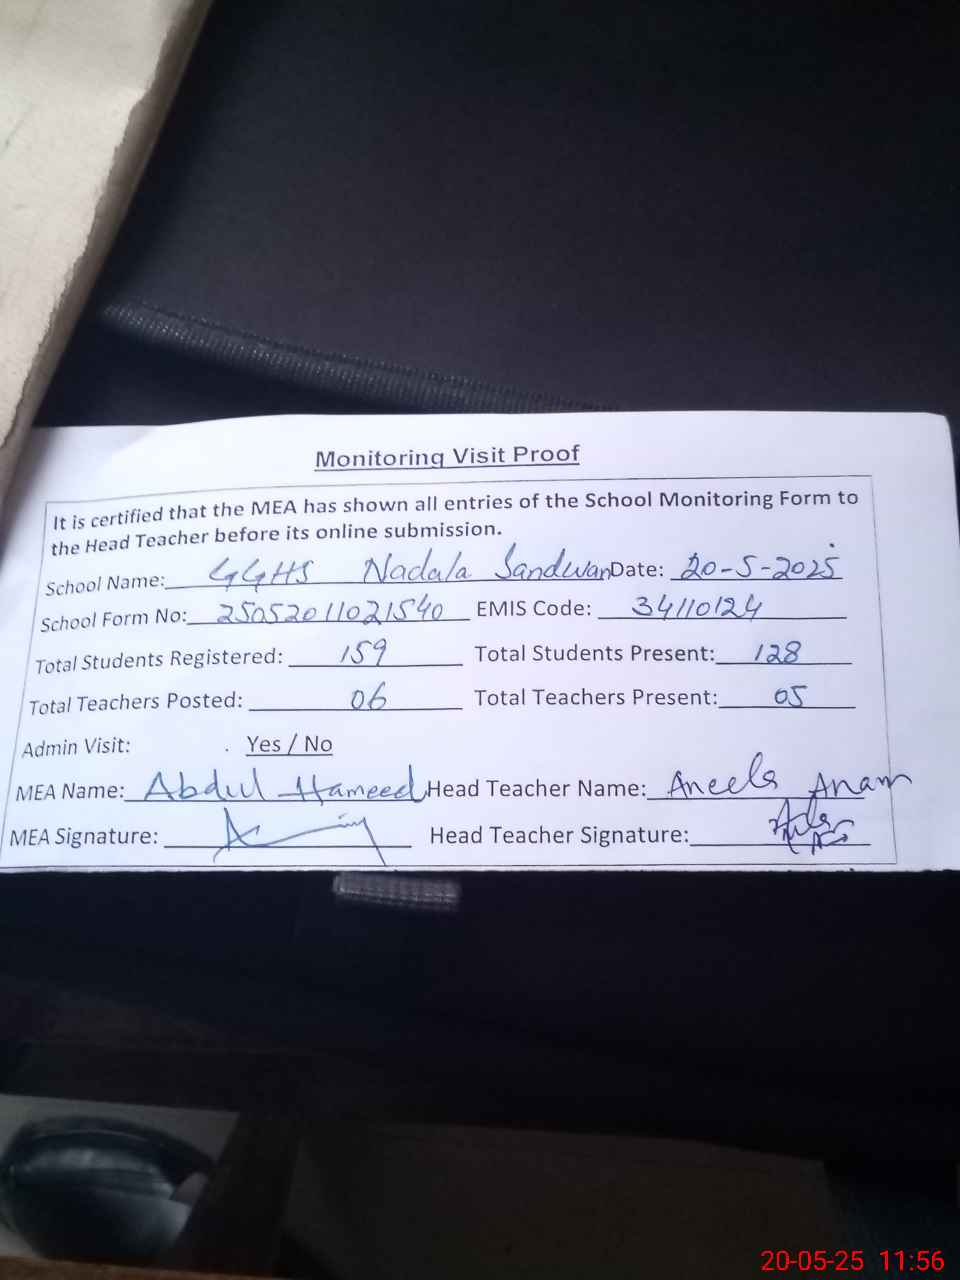 Monitoring Visit Proof
It is certified that the MEA has shown all entries of the School Monitoring Form to
the Head Teacher before its online submission.
School Name: GGHS Nadala Sandwan Date: 20-5-2025
School Form No: 25052011021540 EMIS Code: 34110124
Total Students Registered: 159 Total Students Present: 128
Total Teachers Posted: 06 Total Teachers Present: 05
Admin Visit: Yes / No
MEA Name: Abdul Hameed Head Teacher Name: Aneela Anam
MEA Signature: Head Teacher Signature:
20-05-25 11:56